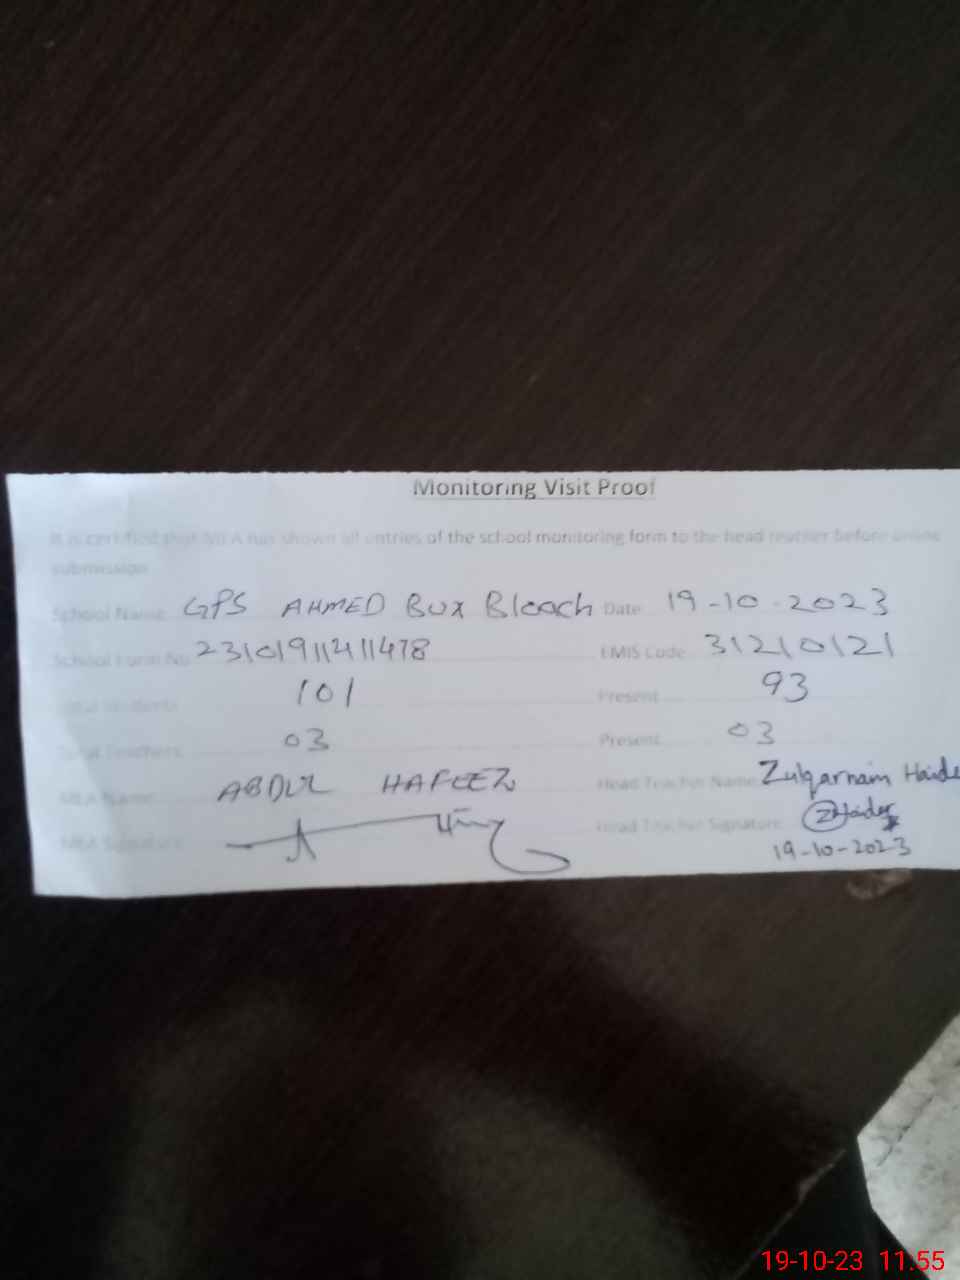 Monitoring Visit Proof
It is certified that MEA has shown all entries of the school monitoring form to the head teacher before online
submission
School Name GPS AHMED BUX Bloach Date 19-10-2023
School Form No 231019112411478 EMIS Code 31210121
Total Students 101 Present 93
Total Teachers 03 Present 03
MEA Name ABDUL HAFEEZ Head Teacher Name Zulqarnain Haide
MEA Signature Head Teacher Signature ZHaider
19-10-2023
19-10-23 11.55